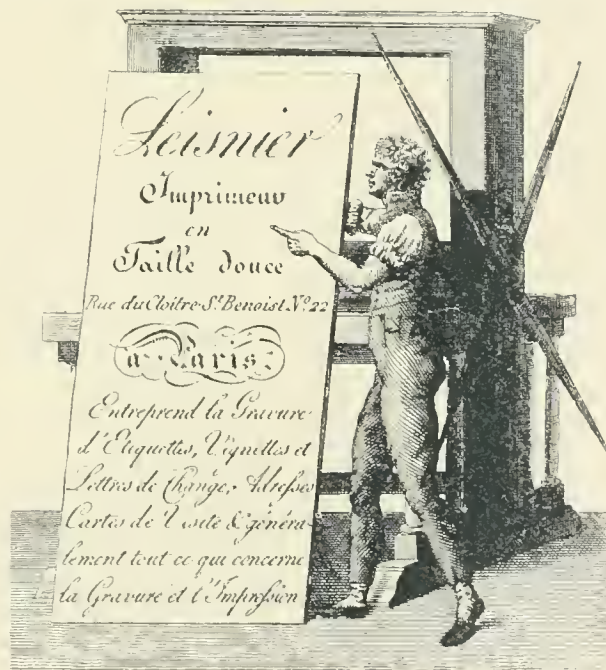 Leisnier
Imprimeur
en
Taille douce
Rue du Cloitre St. Benoist No. 22
a Paris.
Entreprend la Gravure
d'Etiquettes, Vignettes et
Lettres de Change, Adreſses
Cartes de Visite & généra-
lement tout ce qui concerne
la Gravure et l'Impreſsion